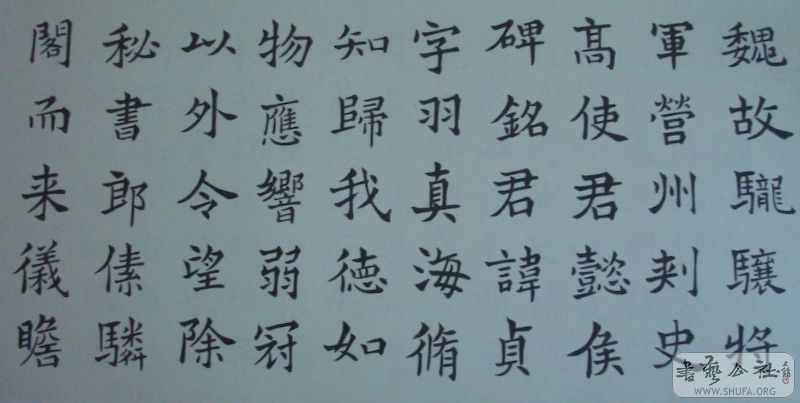 魏故驤將
軍營州刾史
髙使君懿侯
碑銘君諱貞
字羽真海脩
知歸我徳如
物應響弱冠
以外令望除
秘書郎傃驎
閣而来儀瞻
書藝公社
WWW.SHUFA.ORG